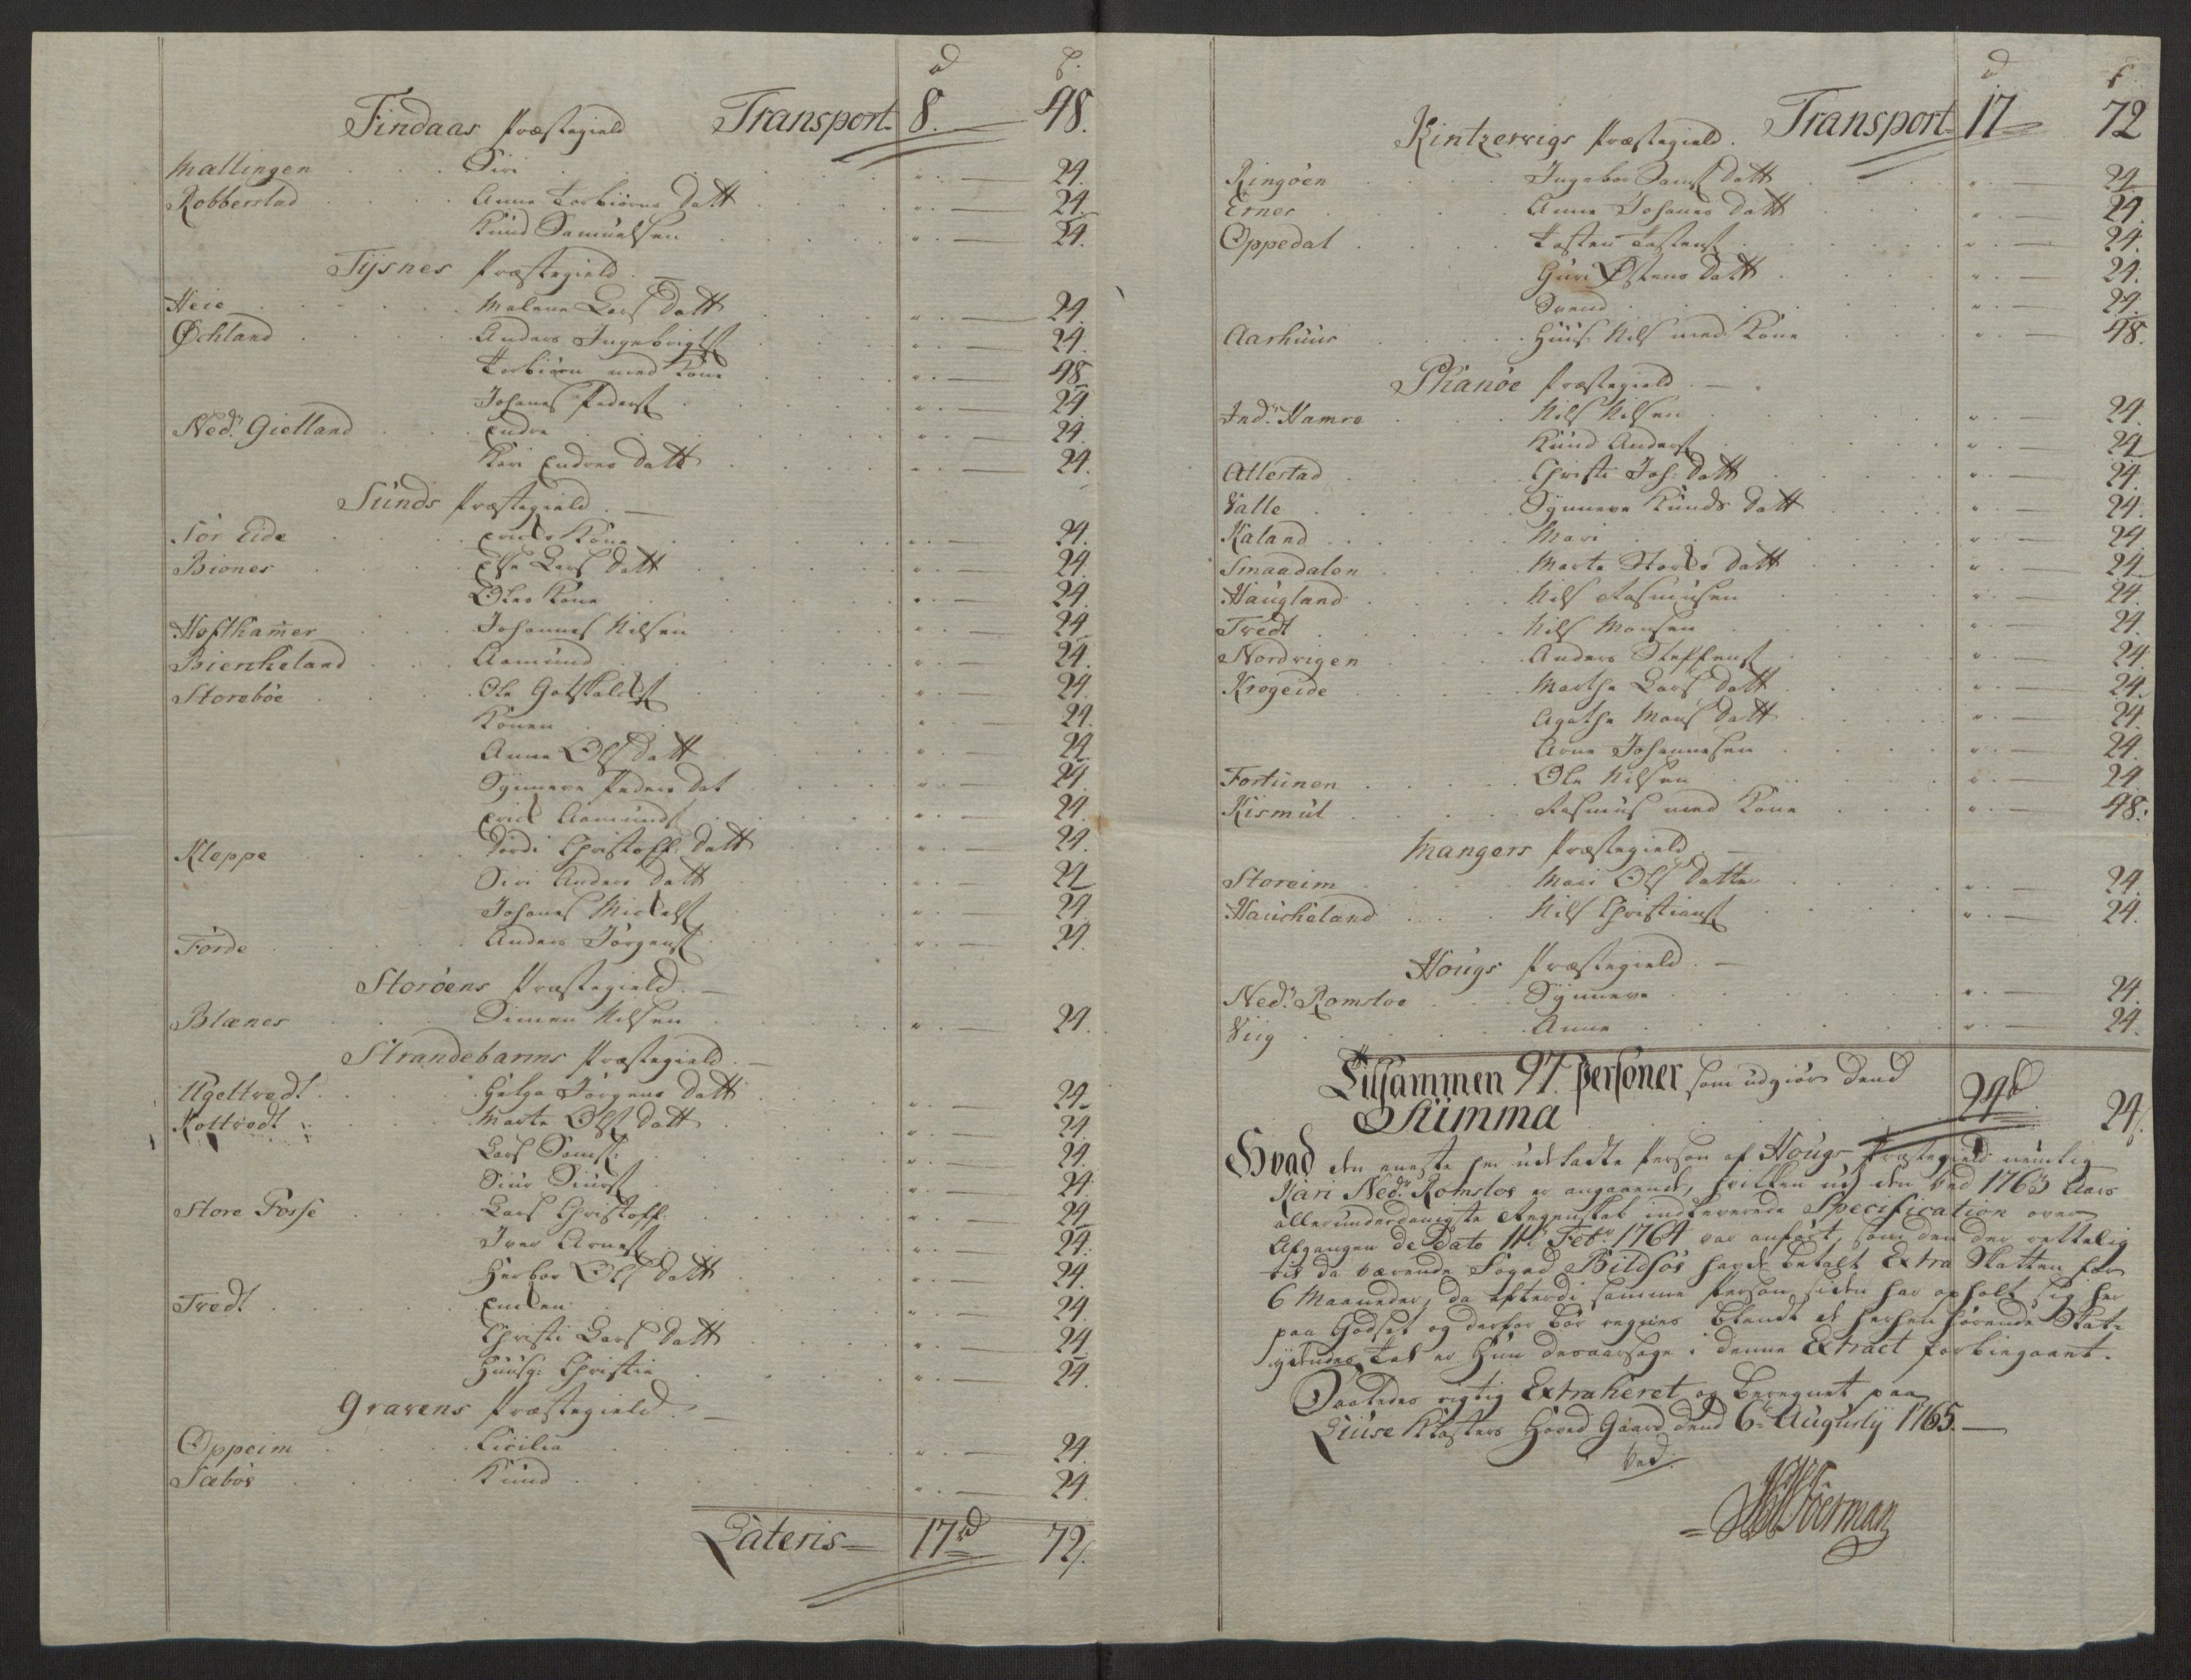 Findaas Præstegield Transport 8. 48.
Mællingen Siri 24.
Robberstad Anna Torbiørns Datt 24.
Knud Samuelsen 24.
Tysnes Præstegield.
Heie Malene Lars Datt 24.
Øchland Anders Ingebrigts. 24.
Torbiørn med Kone 48
Johanes Peders. 24
Ned. Gielland Endre 24.
Kari Endres Datt 24.
Sunds Præstegield.
Sør Eide Erichs Kone 24.
Biones Else Lars Datt 24.
Oles Kone 24.
Hofthamer Johannes Nilsen 24
Biercheland Aamund 24.
Storebøe Ole Gotskalchs. 24.
Konen 24.
Anna Ols Datt 24.
Synneve Peders Dat 24.
Erich Aamunds. 24.
Kleppe Dordi Christoff. Datt 24.
Siri Anders Datt 24
Johanes Michels. 24.
Førde Anders Jørgens. 24.
Storøens Præstegield.
Blænes Simen Nilsen 24.
Strandebarms Præstegield.
Ugeltvedt Helga Jørgens Datt 24.
Koltvedt Marte Ols Datt 24.
Lars Sams. 24.
Siur Siurs. 24.
Store Fosse Lars Christoff. 24.
Iver Arnes. 24.
Herbor Ols Datt 24.
Tvedt Enchen 24.
Christi Lars Datt 24.
Huusq: Christie 24.
Gravens Præstegield.
Oppeim Cicilia 24.
Sæbøe Knud 24.
Lateris 17 72
Kintzervigs Præstegield. Transport 17 72
Ringøen Ingebor Sams. Datt 24.
Ernes Anna Johanes Datt 24.
Oppedal Tosten Tostens. 24.
Guri Østens Datt 24.
Svend 24.
Aarhuus Huus. Nils med Kone 48.
Phanøe Præstegield.
Ind. Hamre Nils Nilsen 24.
Knud Anders. 24
Allestad Christi Joh: Datt 24.
Valle Synneve Knuds Datt 24.
Kaland Mari 24.
Smaadalen Marta Storks Datt 24.
Haugland Nils Rasmusen 24.
Tvedt Nils Monsen 24.
Nordvigen Anders Steffens. 24.
Krogeide Marthe Lars Datt 24.
Agathe Mons Datt 24.
Arne Johannesen 24.
Fortunen Ole Nilsen 24
Kismul Rasmus med Kone 48.
Mangers Præstegield.
Storeim Mari Ols Datter 24.
Hauscheland Nils Christians. 24.
Hougs Præstegield.
Ned. Romsloe Synneve 24.
Viig Anna 24.
Tilsammen 97. Personer som udgiør dend
Summa 24 24
Hvad den eneste her udeladte Person af Hougs Præstegield nemlig
Kari Ned. Romsloe er angaaende, hvilken udi den ved 1763 Aars
allerunderdanigste Regenskab indleverede Specification over
Afgangen de Dato 11. Febr. 1764 var anført, som den der rettelig
til da værende Foged Bildsøe havde betalt Extra Skatten for
6 Maaneder, da efterdi samme Person siden har opholt sig her
paa Godset og derfor bør regnes blandt de herhen hørende Skat-
ydendes Tal er Hun desaarsage i denne Extract forbigaaet.
Saaledes rigtig Extraheret og beregnet paa
Liuse Klosters Hoved Gaard dend 6. Augusty 1765.
ved.